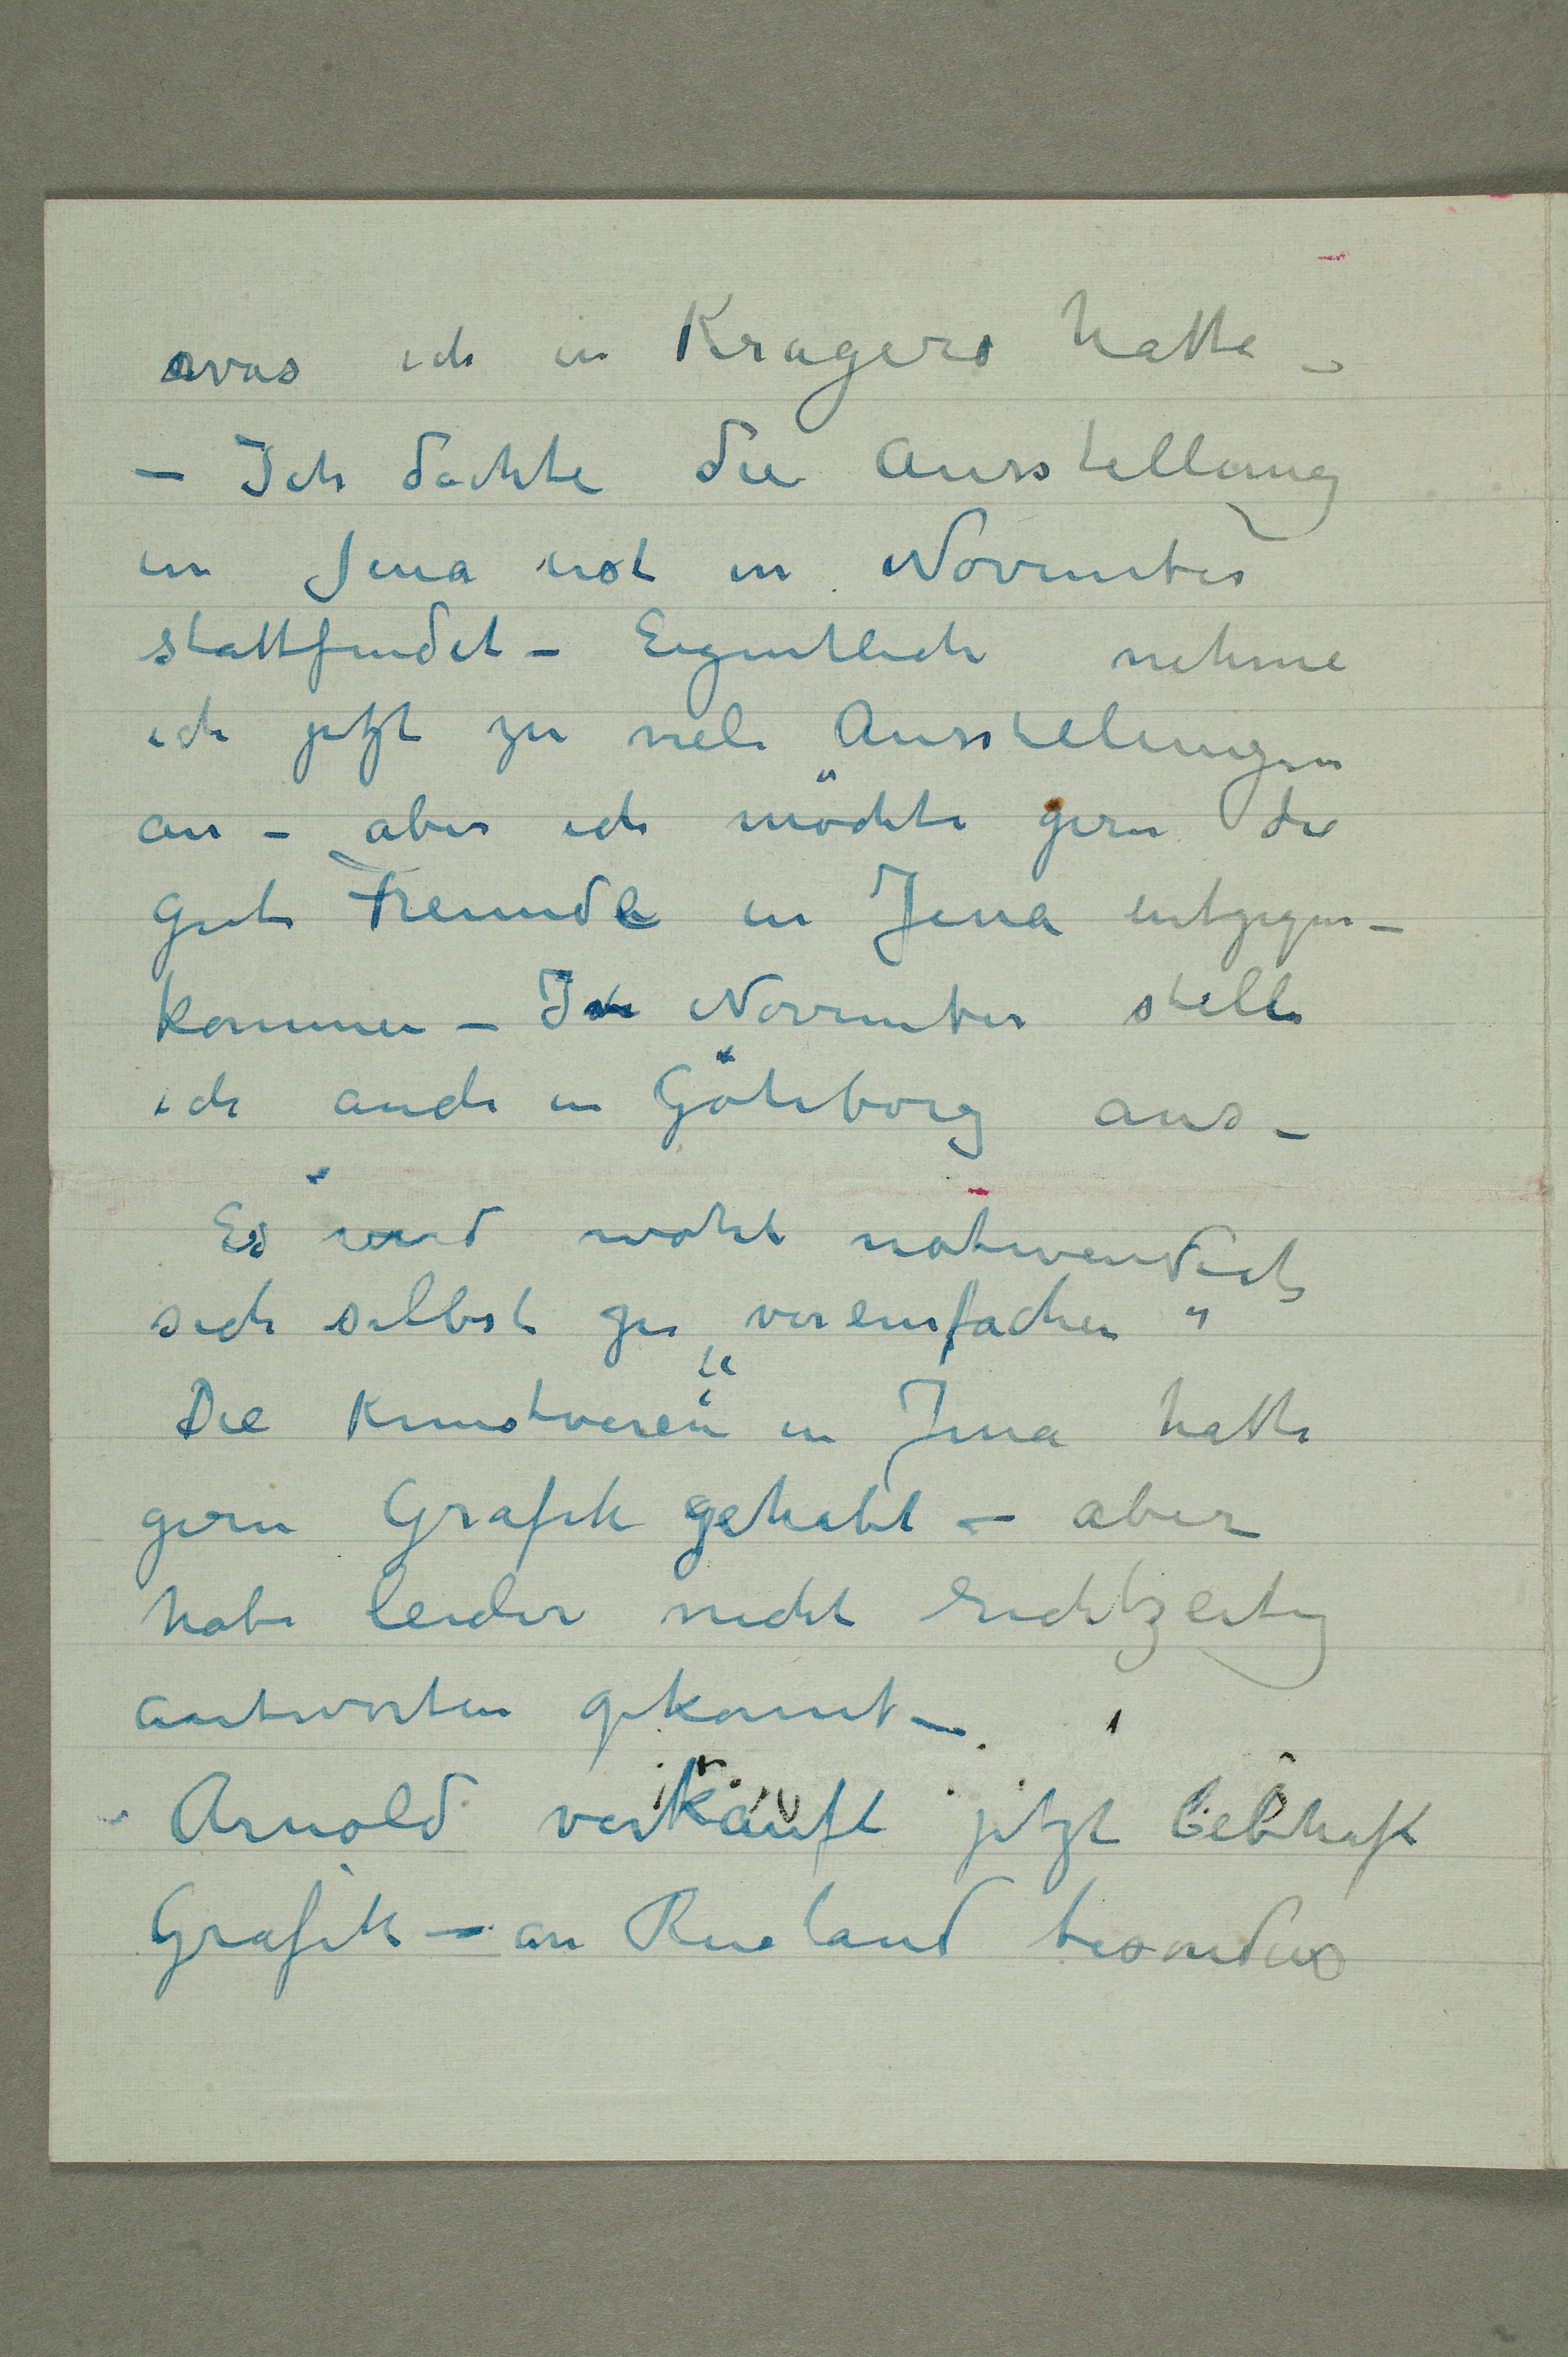 was ich in Kragerø hatte –
– Ich dachte die Ausstellung
in Jena ist in November
stattfindet – Eigentlich nehme
ich jetzt zu viele Ausstellungen
an – aber ich möchte gern die
gute Freunde in Jena entgegen–
kommen – In November stelle
ich auch in Göteborg aus –
Es wird wohl notwendich
sich selbst zu „vereinfachen"
Die Kunstverein in Jena hatte
gern Grafik gehabt – aber
habe leider nicht rechtzeitig
antworten gekonnt –
Arnold verkauft jetzt lebhaft
Grafik – an Rusland besonders